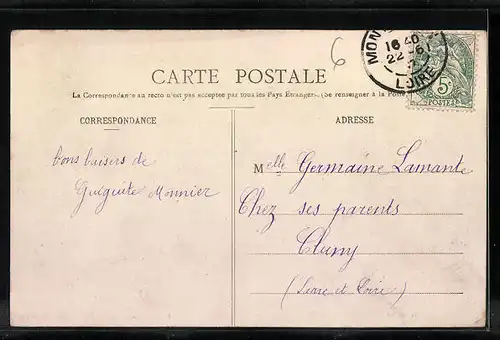 6
MON
16 40
22 -6
LOIRE
5c
POSTES
CARTE POSTALE
La Correspondance au recto n'est pas acceptée par tous les Pays Etrangers. (Se renseigner à la Poste
CORRESPONDANCE
ADRESSE
bons baisers de
Guiguite Monnier
Melle Germaine Lamante
Chez ses parents
Cluny
(Saone et Loire)